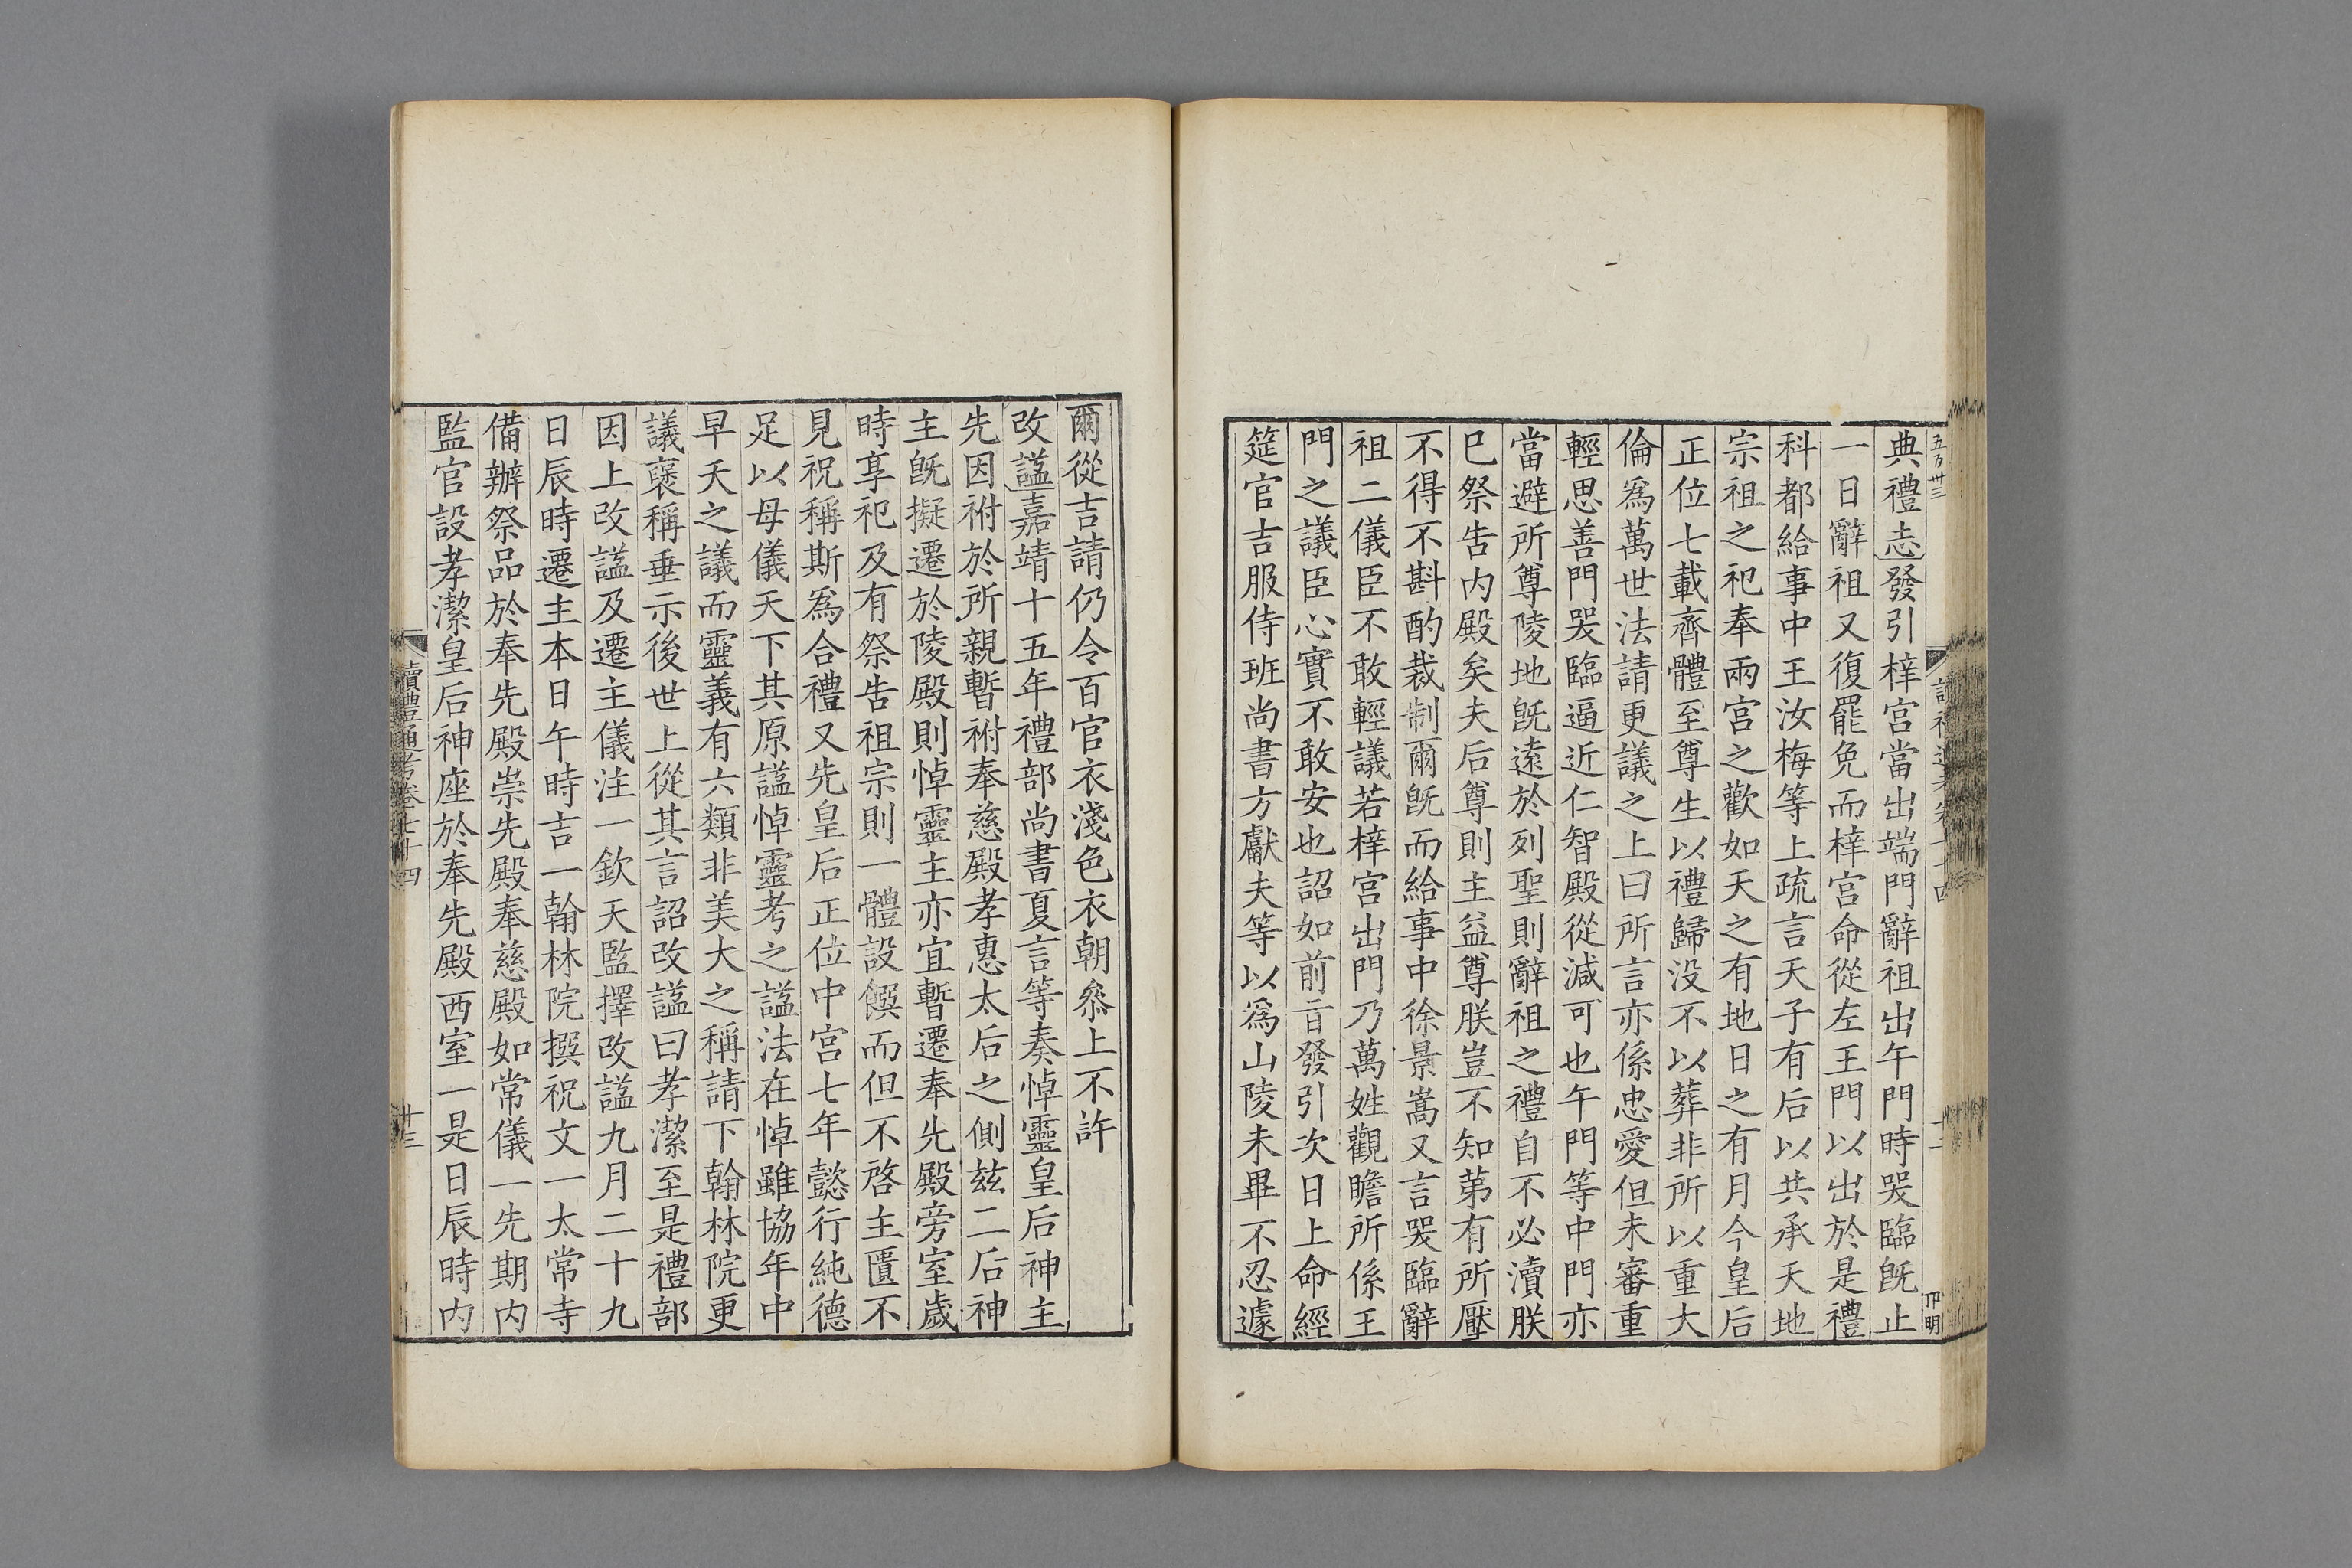 典禮志發引梓宮當出端門辭祖出午門時哭臨旣止
一日辭祖又復罷免而梓宮命從左王門以出於是禮
科都給事中王汝梅等上疏言天子有后以共承天地
宗祖之祀奉兩宮之歡如天之有地日之有月今皇后
正位七載齊體至尊生以禮歸没不以葬非所以重大
倫爲萬世法請更議之上曰所言亦係忠愛但未審重
輕思善門哭臨逼近仁智殿從減可也午門等中門亦
當避所尊陵地旣遠於列聖則辭祖之禮自不必瀆朕
已祭告内殿矣夫后尊則主益尊朕豈不知苐有所壓
不得不斟酌裁制爾旣而給事中徐景嵩又言哭臨辭
祖二儀臣不敢輕議若梓宮出門乃萬姓觀瞻所係王
門之議臣心實不敢安也詔如前旨發引次日上命經
筵官吉服侍班尚書方獻夫等以爲山陵未畢不忍遽
爾從吉請仍令百官衣淺色衣朝叅上不許
改諡嘉靖十五年禮部尚書夏言等奏悼靈皇后神主
先因祔於所親暫祔奉慈殿孝惠太后之側兹二后神
主旣擬遷於陵殿則悼靈主亦宜暫遷奉先殿旁室歲
時享祀及有祭告祖宗則一體設饌而但不啓主匱不
見祝稱斯爲合禮又先皇后正位中宮七年懿行純德
足以母儀天下其原諡悼靈考之諡法在悼雖協年中
早夭之議而靈義有六類非美大之稱請下翰林院更
議褒稱垂示後世上從其言詔改諡曰孝潔至是禮部
因上改諡及遷主儀注一欽天監擇改諡九月二十九
日辰時遷主本日午時吉一翰林院撰祝文一太常寺
備辦祭品於奉先殿崇先殿奉慈殿如常儀一先期内
監官設孝潔皇后神座於奉先殿西室一是日辰時内
讀禮通考卷七十四
卅三